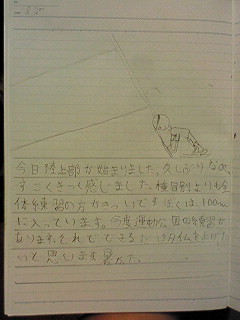 今日陸上部が始まりました。久しぶりなので、
すごくきつく感じました。種目別よりも全
体練習の方がきついです。ぼくは、100m
に入っています。今度運動公園で練習が
あります。それで できるだけタイムを上げた
いと思います。